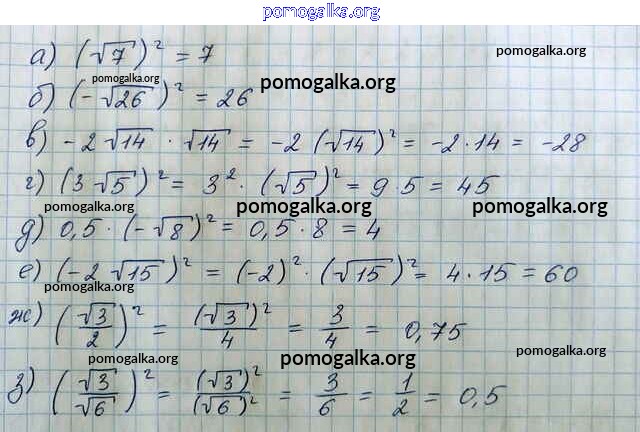 pomogalka.org
а) (√7)² = 7
pomogalka.org
pomogalka.org
pomogalka.org
б) (-√26)² = 26
в) -2√14 · √14 = -2(√14)² = -2·14 = -28
г) (3√5)² = 3² · (√5)² = 9·5 = 45
pomogalka.org pomogalka.org pomogalka.org
д) 0,5·(-√8)² = 0,5·8 = 4
е) (-2√15)² = (-2)²·(√15)² = 4·15 = 60
pomogalka.org
ж) (√3/2)² = (√3)²/4 = 3/4 = 0,75
pomogalka.org pomogalka.org pomogalka.org
з) (√3/√6)² = (√3)²/(√6)² = 3/6 = 1/2 = 0,5